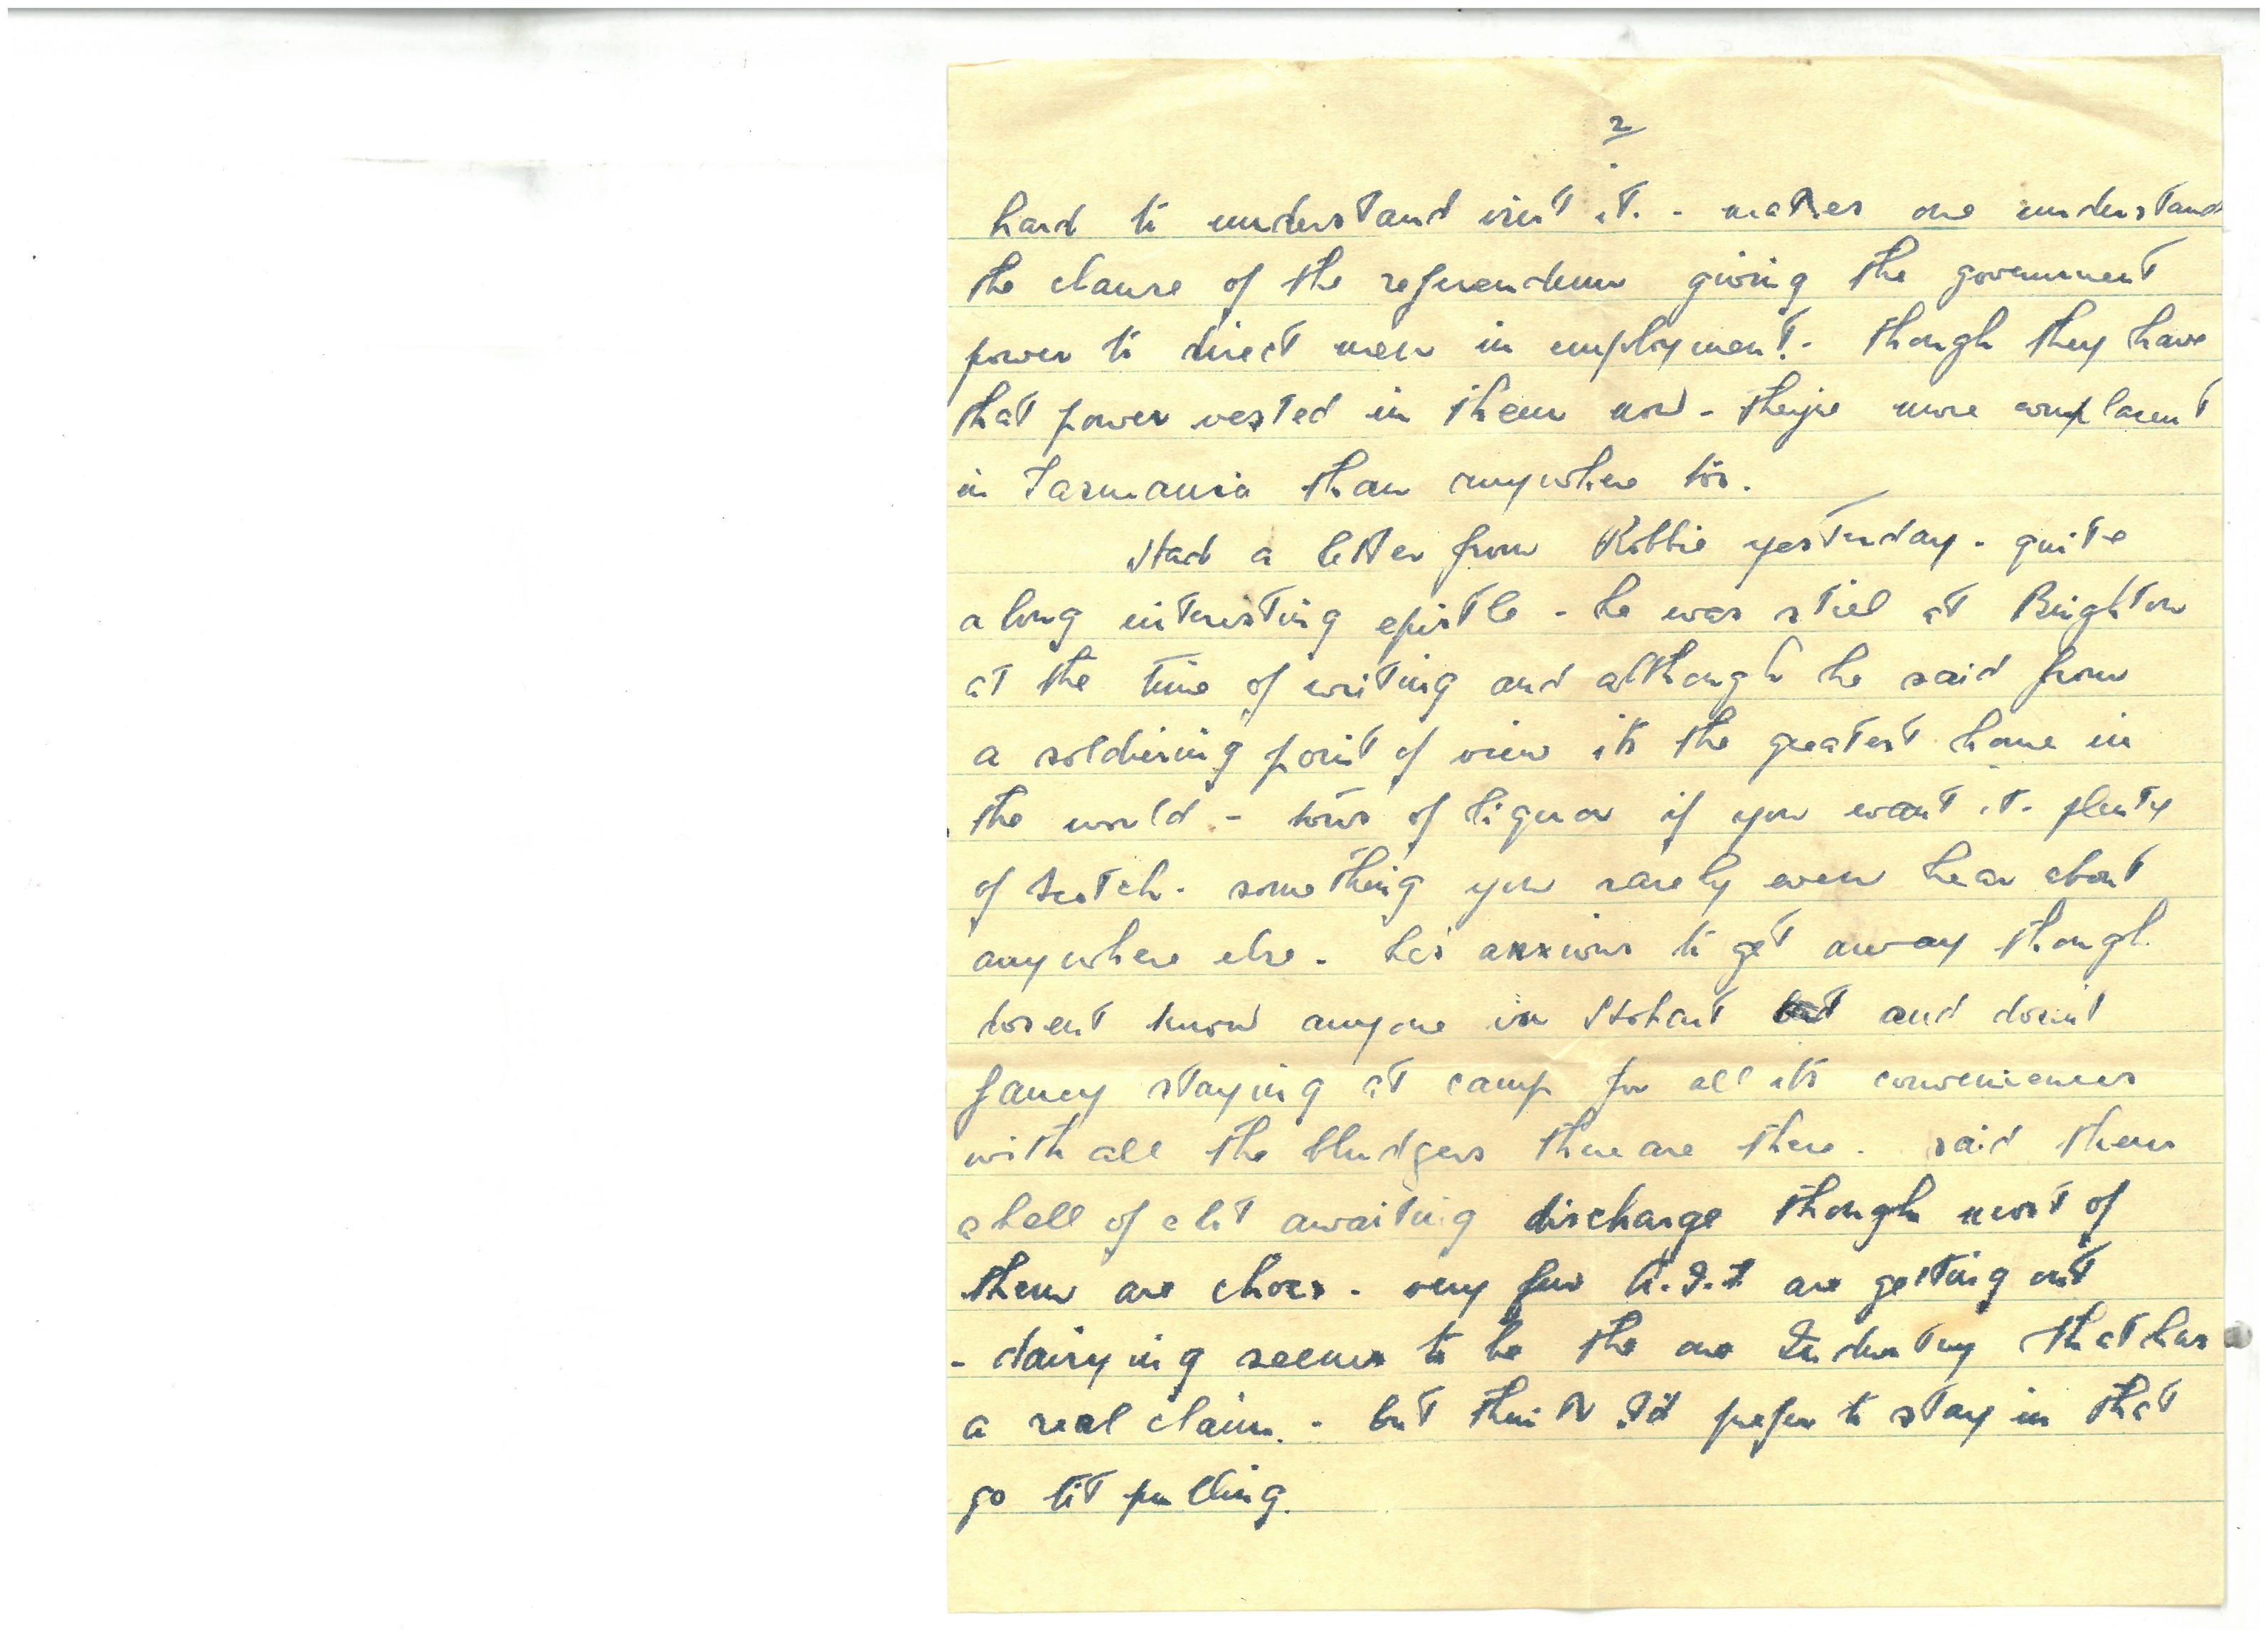 2
hard to understand isn't it. - makes one understand
the clause of the referendum giving the government
power to direct men in employment. - though they have
that power vested in them now - they're more complacent
in Tasmania than anywhere too.
Had a letter from Robbie yesterday - quite
a long interesting epistle - he was still at Brighton
at the time of writing and although he said from
a soldiering point of view its the greatest home in
the world - tons of liquor if you want it - plenty
of Scotch - something you rarely even hear about
anywhere else - he's anxious to get away though
doesnt know anyone in Hobart and doesn't
fancy staying at camp for all its conveniences
with all the bludgers there are there. said theres
a hell of a lot awaiting discharge though most of
them are chocs - very few A.I.F are getting out
- dairying seems to be the one Industry that has
a real claim. - but think I'd prefer to stay in that
go tit pulling.